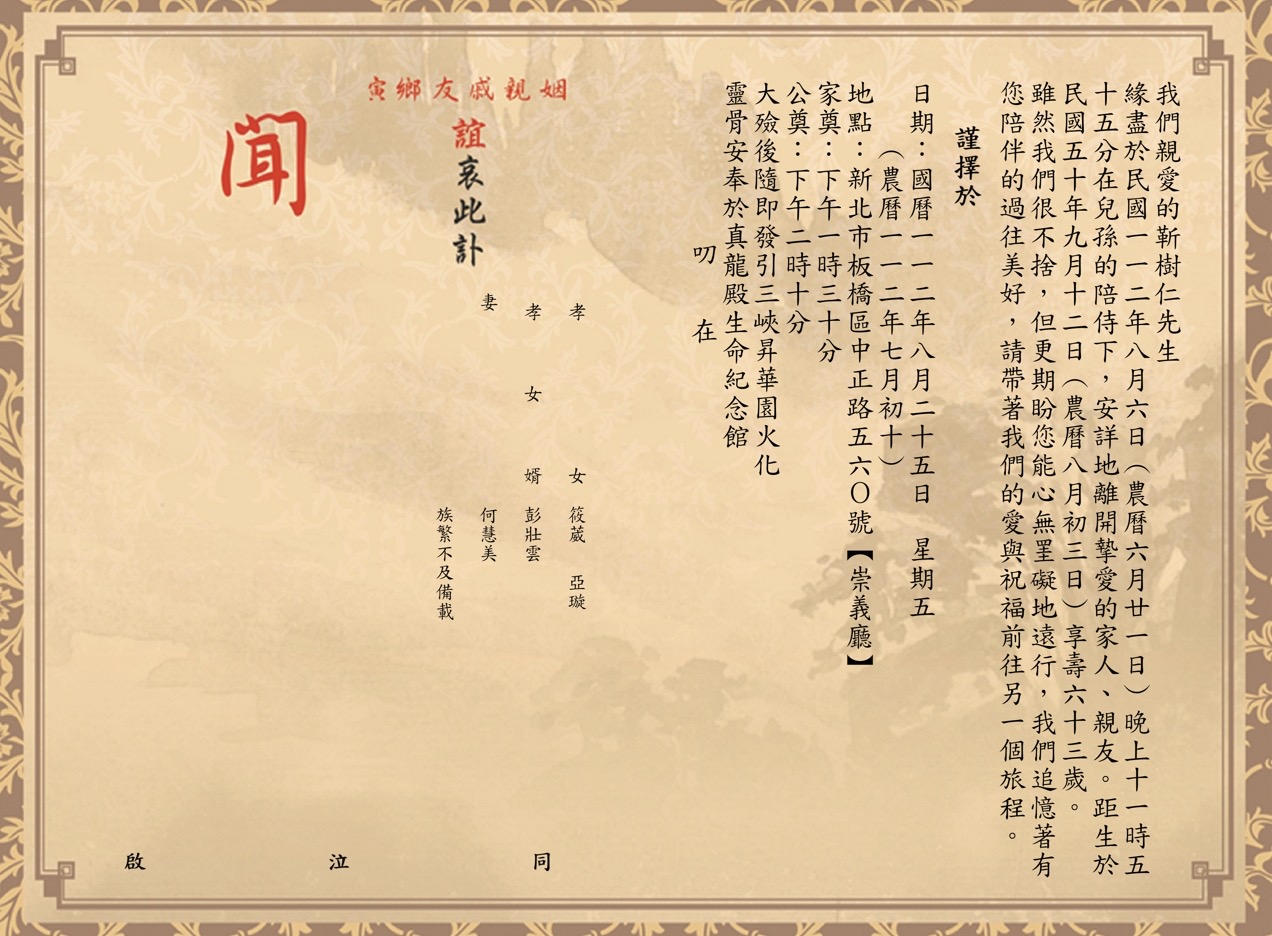 我們親愛的靳樹仁先生
緣盡於民國一一二年八月六日（農曆六月廿一日）晚上十一時五
十五分在兒孫的陪侍下，安詳地離開摯愛的家人、親友。距生於
民國五十年九月十二日（農曆八月初三日）享壽六十三歲。
雖然我們很不捨，但更期盼您能心無罣礙地遠行，我們追憶著有
您陪伴的過往美好，請帶著我們的愛與祝福前往另一個旅程。
謹擇於
日期：國曆一一二年八月二十五日　星期五
（農曆一一二年七月初十）
地點：新北市板橋區中正路五六〇號【崇義廳】
家奠：下午一時三十分
公奠：下午二時十分
大殮後隨即發引三峽昇華園火化
靈骨安奉於真龍殿生命紀念館
叨在
姻親戚友鄉寅
誼哀此訃
聞
孝女　筱葳　亞璇
孝女婿　彭壯雲
妻　何慧美
族繁不及備載
同泣啟